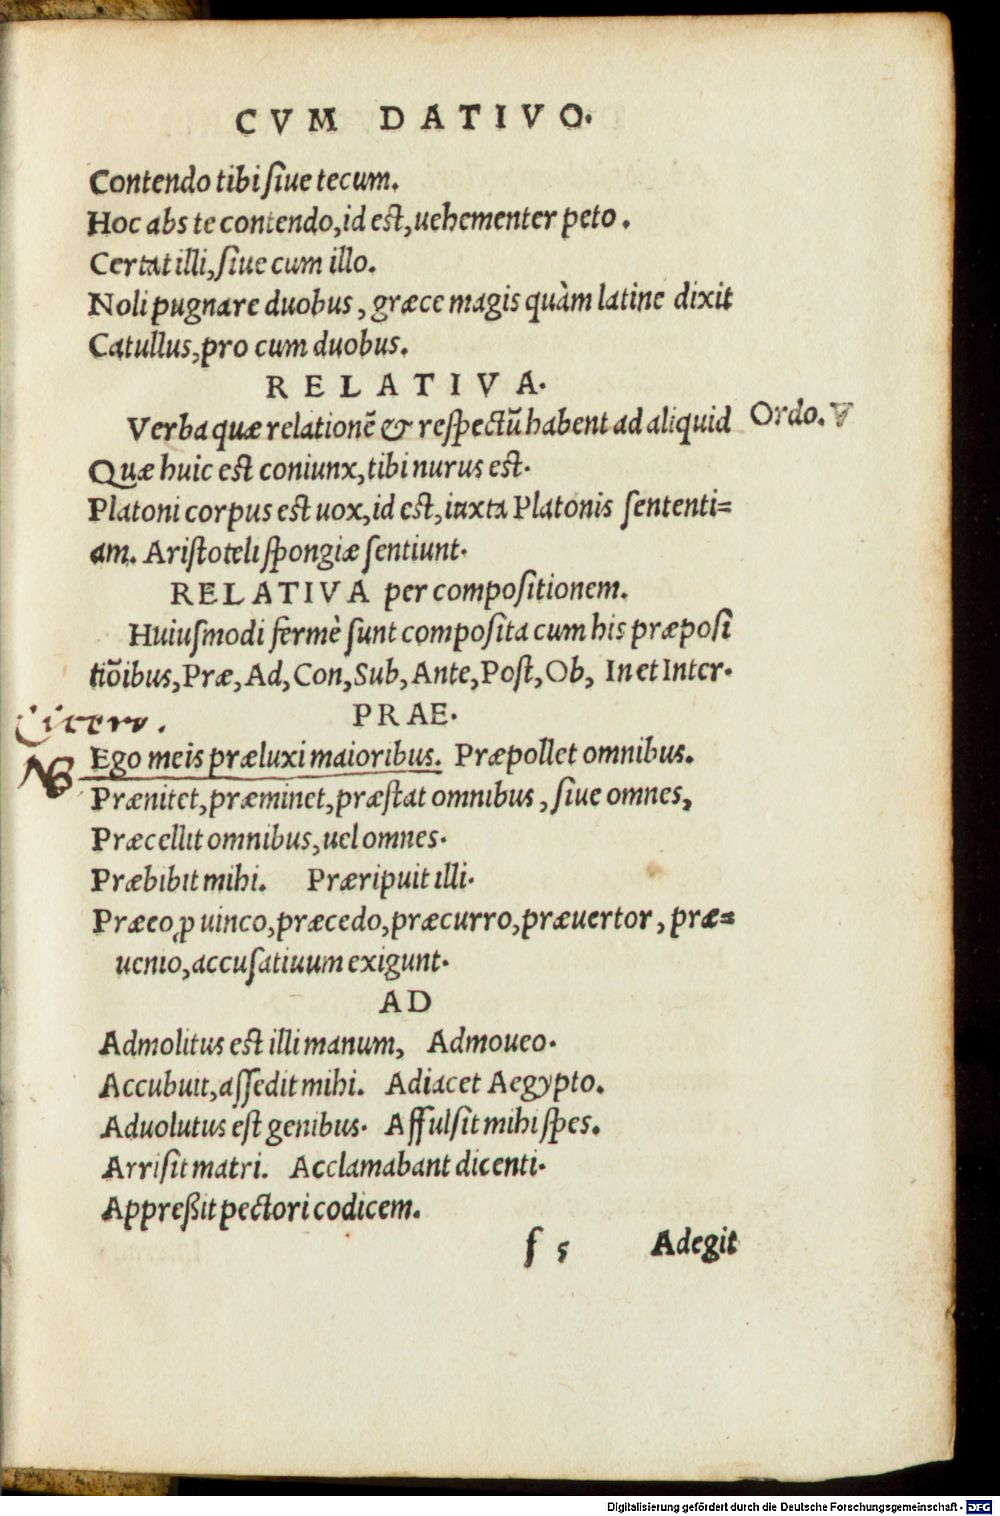 CVM DATIVO.
Contendo tibi ſiue tecum.
Hoc abs te contendo, id est, uehementer peto.
Certat illi, ſiue cum illo.
Noli pugnare duobus, græce magis quàm latine dixit
Catullus, pro cum duobus.
RELATIVA.
Verba quæ relationē & reſpectū habent ad aliquid Ordo. V
Quæ huic est coniunx, tibi nurus est.
Platoni corpus est uox, id est, iuxta Platonis ſententi=
am. Ariſtoteli ſpongiæ ſentiunt.
RELATIVA per compoſitionem.
Huiuſmodi fermè ſunt compoſita cum his præpoſi
tiōibus, Præ, Ad, Con, Sub, Ante, Poſt, Ob, In et Inter.
PRAE.
Cicero.
NB Ego meis præluxi maioribus. Præpollet omnibus.
Prænitet, præminet, præſtat omnibus, ſiue omnes,
Præcellit omnibus, uel omnes.
Præbibit mihi. Præripuit illi.
Præeo, ꝓ uinco, præcedo, præcurro, præuertor, præ=
uenio, accuſatiuum exigunt.
AD
Admolitus est illi manum, Admoueo.
Accubuit, aſſedit mihi. Adiacet Aegypto.
Aduolutus eſt genibus. Affulſit mihi ſpes.
Arriſit matri. Acclamabant dicenti.
Appreßit pectori codicem.
ſ 5 Adegit
Digitalisierung gefördert durch die Deutsche Forschungsgemeinschaft - DFG